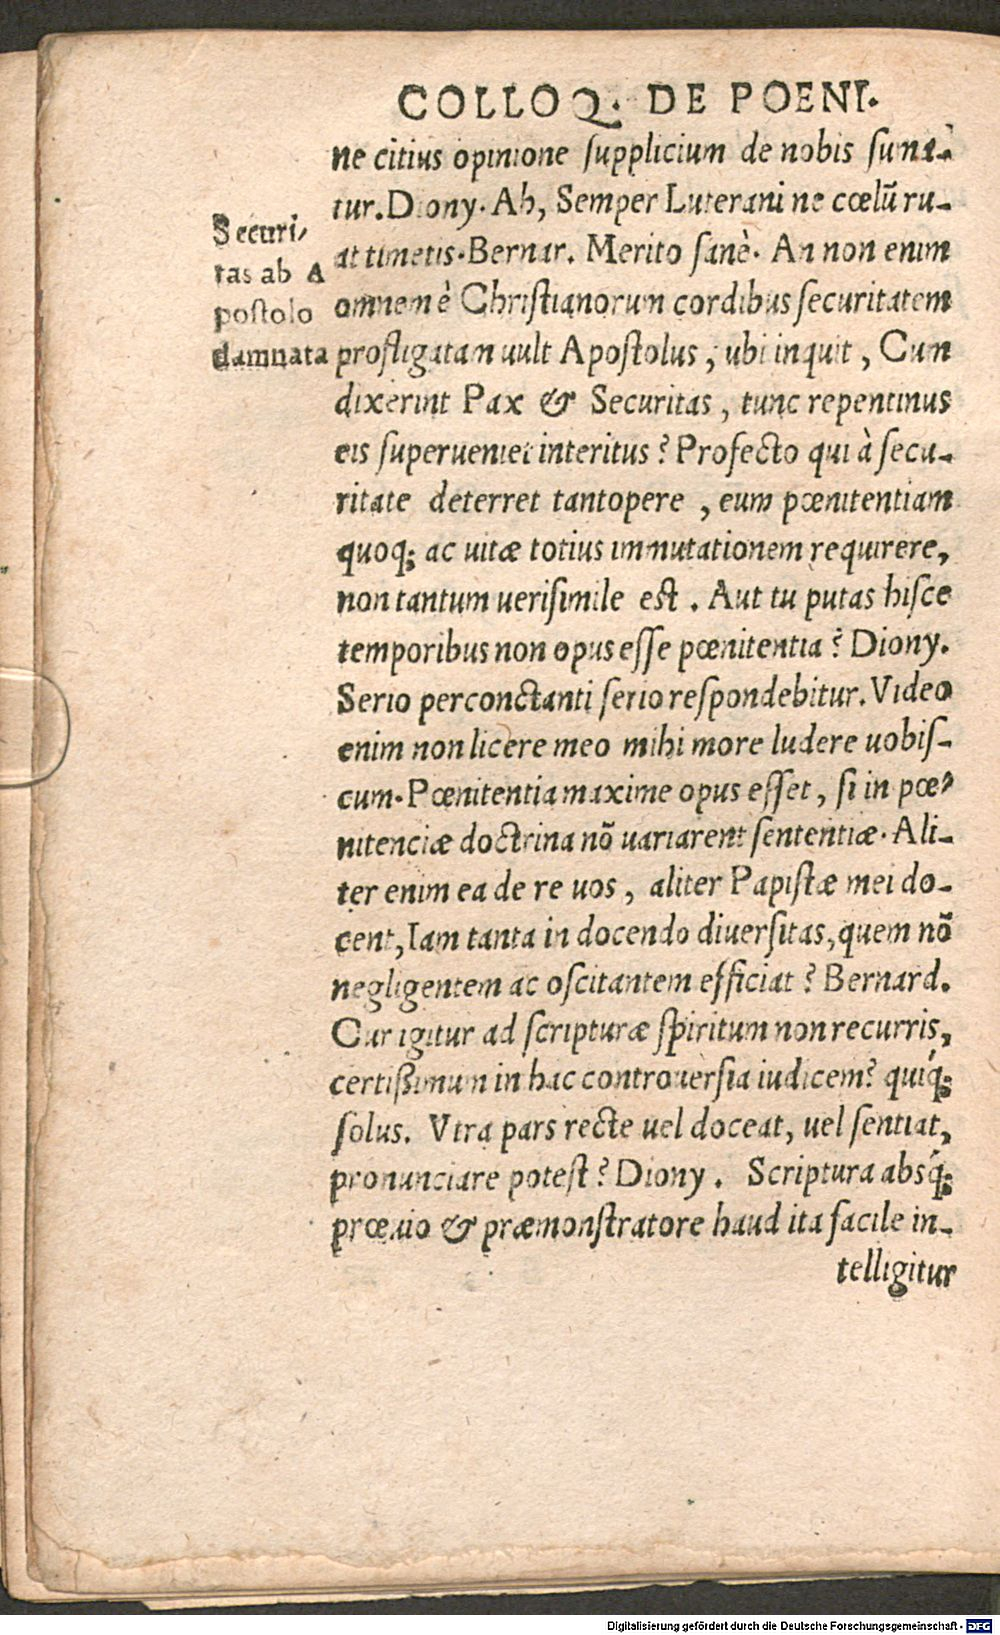 COLLOQ. DE POENI.
ne citius opinione supplicium de nobis suma-
tur. Diony. Ah, Semper Luterani ne cœlũ ru-
at timetis. Bernar. Merito sanè. An non enim
omnem è Christianorum cordibus securitatem
profligatam uult Apostolus, ubi inquit, Cum
dixerint Pax & Securitas, tunc repentinus
eis superueniet interitus? Profecto qui à secu-
ritate deterret tantopere, eum pœnitentiam
quoq; ac uitæ totius immutationem requirere,
non tantum uerisimile est. Aut tu putas hisce
temporibus non opus esse pœnitentia? Diony.
Serio perconctanti serio respondebitur. Video
enim non licere meo mihi more ludere uobis-
cum. Pœnitentia maxime opus esset, si in pœ-
nitenciæ doctrina nõ uariarent sententiæ. Ali-
ter enim ea de re uos, aliter Papistæ mei do-
cent, Iam tanta in docendo diuersitas, quem nõ
negligentem ac oscitantem efficiat? Bernard.
Cur igitur ad scripturæ spiritum non recurris,
certißimum in hac controuersia iudicem? quíq;
solus. Vtra pars recte uel doceat, uel sentiat,
pronunciare potest? Diony. Scriptura absq́;
prœuio & præmonstratore haud ita facile in-
telligitur
Securi-
tas ab A
postolo
damnata
Digitalisierung gefördert durch die Deutsche Forschungsgemeinschaft - DFG